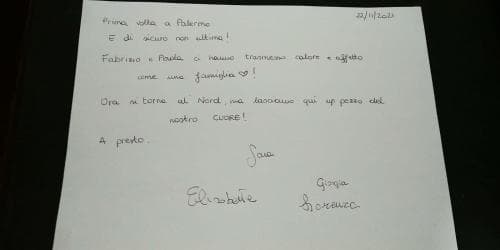 22/11/2021
Prima volta a Palermo
E di sicuro non ultima!
Fabrizio e Paola ci hanno trasmesso calore e affetto
come una famiglia ♡!
Ora si torna al Nord, ma lasciamo qui un pezzo del
nostro CUORE!
A presto.
Sara
Giorgia
Elisabetta
Lorenza